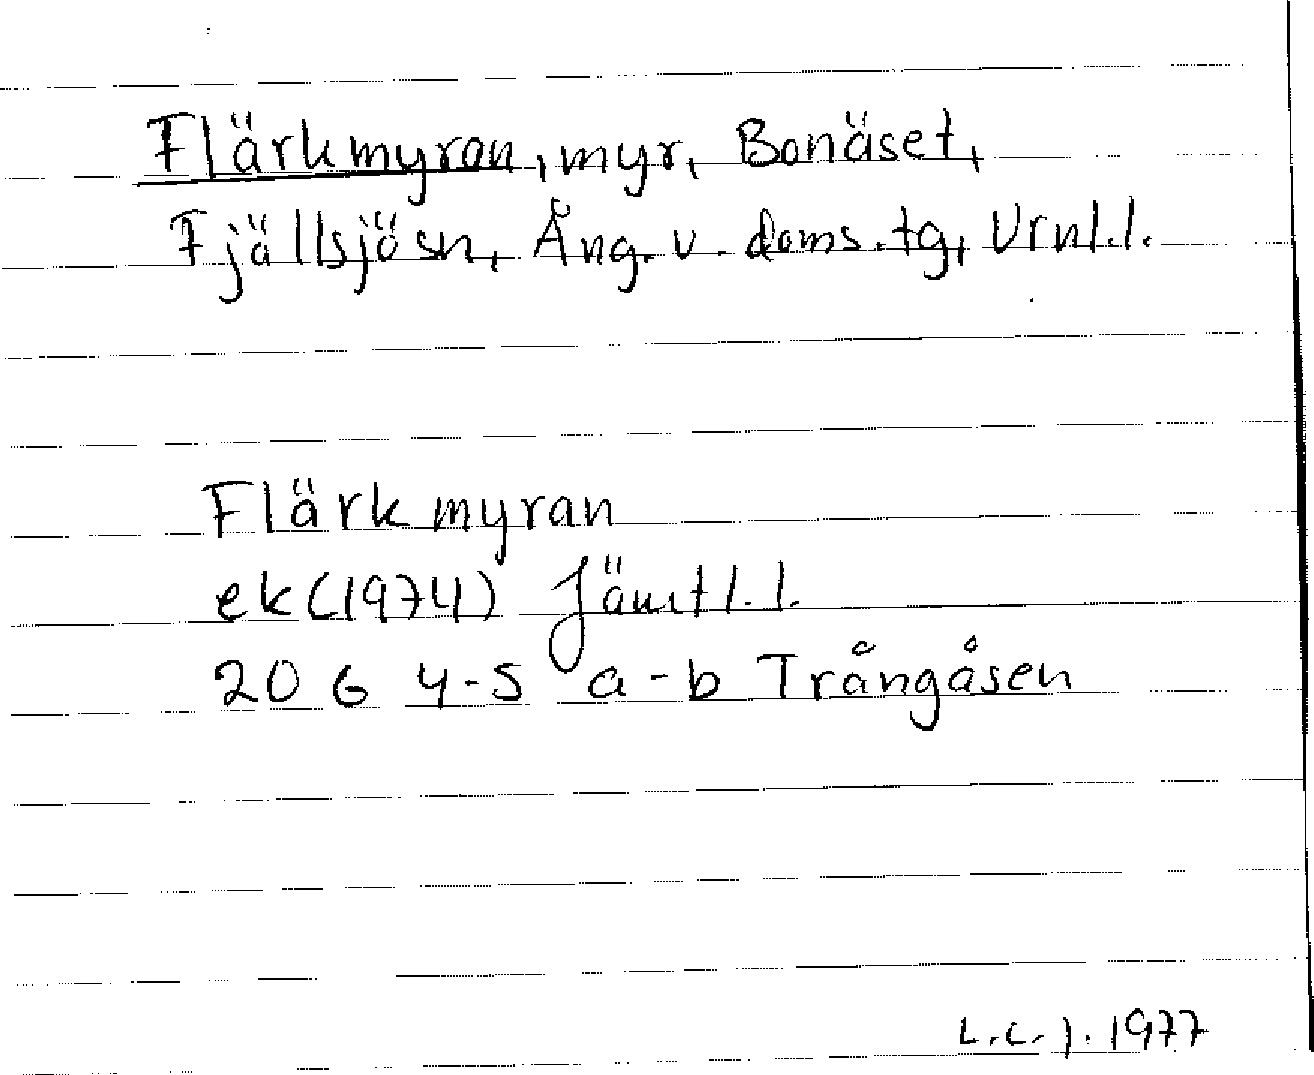 Flärkmyran, myr, Bonäset,
Fjällsjösn, Ång. v. doms.tg, Vrnl.l.
Flärkmyran
ek(1974) Jämtl.l.
20 G 4-5 a-b Trångåsen
L.C.J. 1977